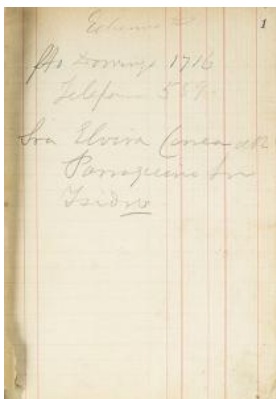 1
Sto Domingo 1716
Telefono 559
Sra Elvira Correa de
Parraguirre Sn
Isidro